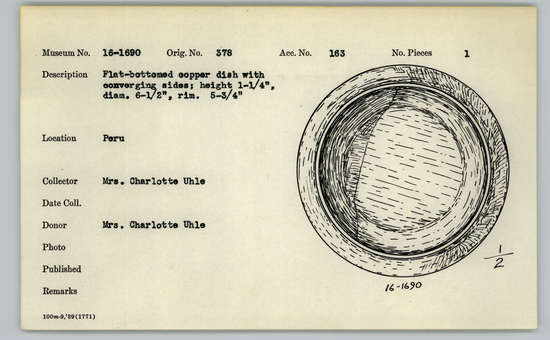 Museum No. 16-1690 Orig. No. 378 Acc. No. 163 No. Pieces 1
Description Flat-bottomed copper dish with
converging sides; height 1-1/4",
diam. 6-1/2", rim. 5-3/4"
Location Peru
Collector Mrs. Charlotte Uhle
Date Coll.
Donor Mrs. Charlotte Uhle
Photo
Published
Remarks
1/2
16-1690
100m-9,'39(1771)